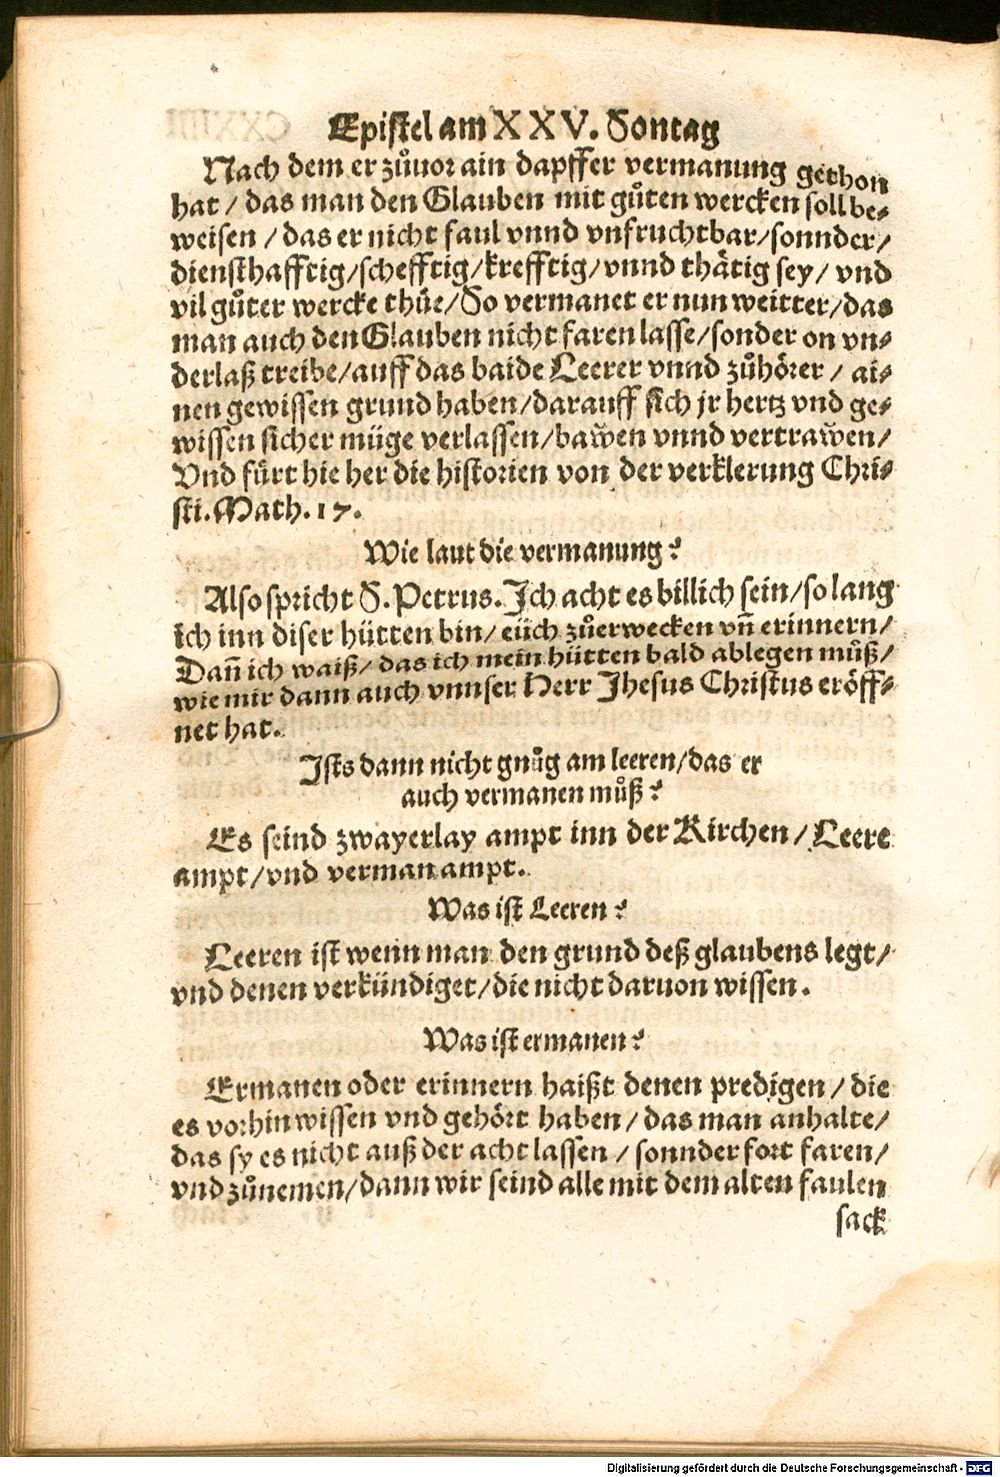 Epistel am XXV. Sontag
Nach dem er zůuor ain dapffer vermanung gethon
hat / das man den Glauben mit gůten wercken soll be⸗
weisen / das er nicht faul vnnd vnfruchtbar/sonnder/
diensthafftig/schefftig/krefftig/vnnd thätig sey/ vnd
vil gůter wercke thüe/So vermanet er nun weitter/das
man auch den Glauben nicht faren lasse/sonder on vn⸗
derlaß treibe/auff das baide Leerer vnnd zůhörer / ai⸗
nen gewissen grund haben/darauff sich jr hertz vnd ge⸗
wissen sicher müge verlassen/baẘen vnnd vertraẘen/
Vnd fürt hie her die historien von der verklerung Chri⸗
sti. Math. 17.
Wie laut die vermanung?
Also spricht S. Petrus. Ich acht es billich sein/so lang
ich inn diser hütten bin/ eüch zůerwecken vñ erinnern/
Dañ ich waiß/ das ich mein hütten bald ablegen můß/
wie mir dann auch vnnser Herr Jhesus Christus eröff⸗
net hat.
Ists dann nicht gnůg am leeren/das er
auch vermanen můß?
Es seind zwayerlay ampt inn der Kirchen / Leere
ampt/vnd verman ampt.
Was ist Leeren?
Leeren ist wenn man den grund deß glaubens legt/
vnd denen verkündiget/die nicht daruon wissen.
Was ist ermanen?
Ermanen oder erinnern haißt denen predigen / die
es vorhin wissen vnd gehört haben / das man anhalte/
das sy es nicht auß der acht lassen / sonnder fort faren/
vnd zůnemen/dann wir seind alle mit dem alten faulen
sack
Digitalisierung gefördert durch die Deutsche Forschungsgemeinschaft - DFG